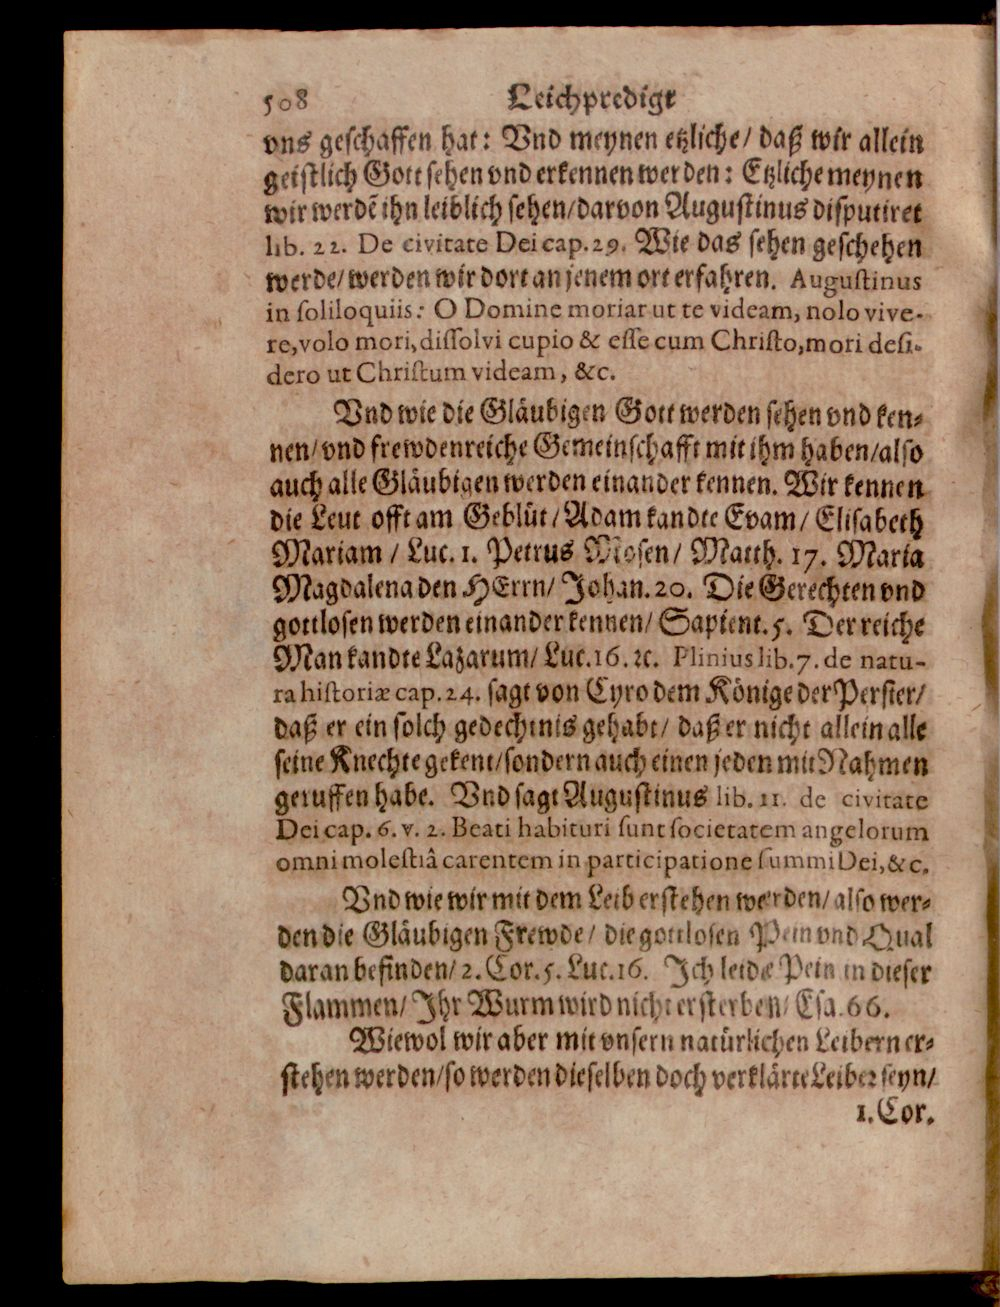 508 Leichpredigt
vns geschaffen hat: Vnd meynen etzliche/ daß wir allein
geistlich Gott sehen vnd erkennen werden: Etzliche meynen
wir werdẽ ihn leiblich sehen/darvon Augustinus disputiret
lib. 22. De civitate Dei cap. 29. Wie das sehen geschehen
werde/ werden wir dort an jenem ort erfahren. Augustinus
in soliloquiis: O Domine moriar ut te videam, nolo vive-
re, volo mori, dissolvi cupio & esse cum Christo, mori desi-
dero ut Christum videam, &c.
Vnd wie die Gläubigen Gott werden sehen vnd ken-
nen/ vnd frewdenreiche Gemeinschafft mit ihm haben/also
auch alle Gläubigen werden einander kennen. Wir kennen
die Leut offt am Geblüt/ Adam kandte Evam/ Elisabeth
Mariam/ Luc. 1. Petrus Mosen/ Matth. 17. Maria
Magdalena den HErrn/ Johan. 20. Die Gerechten vnd
gottlosen werden einander kennen/ Sapient. 5. Der reiche
Man kandte Lazarum/ Luc. 16. ꝛc. Plinius lib. 7. de natu-
ra historiæ cap. 24. sagt von Cyro dem Könige der Persier/
daß er ein solch gedechtnis gehabt/ daß er nicht allein alle
seine Knechte gekent/sondern auch einen jeden mit Nahmen
geruffen habe. Vnd sagt Augustinus lib. 11. de civitate
Dei cap. 6. v. 2. Beati habituri sunt societatem angelorum
omni molestiâ carentem in participatione summi Dei, &c.
Vnd wie wir mit dem Leib erstehen werden/ also wer-
den die Gläubigen Frewde/ die gottlosen Pein vnd Qual
daran befinden/ 2. Cor. 5. Luc. 16. Ich leide Pein in dieser
Flammen/ Ihr Wurm wird nicht ersterben/ Esa. 66.
Wiewol wir aber mit vnsern natürlichen Leibern er-
stehen werden/so werden dieselben doch verklärte Leiber seyn/
1. Cor.